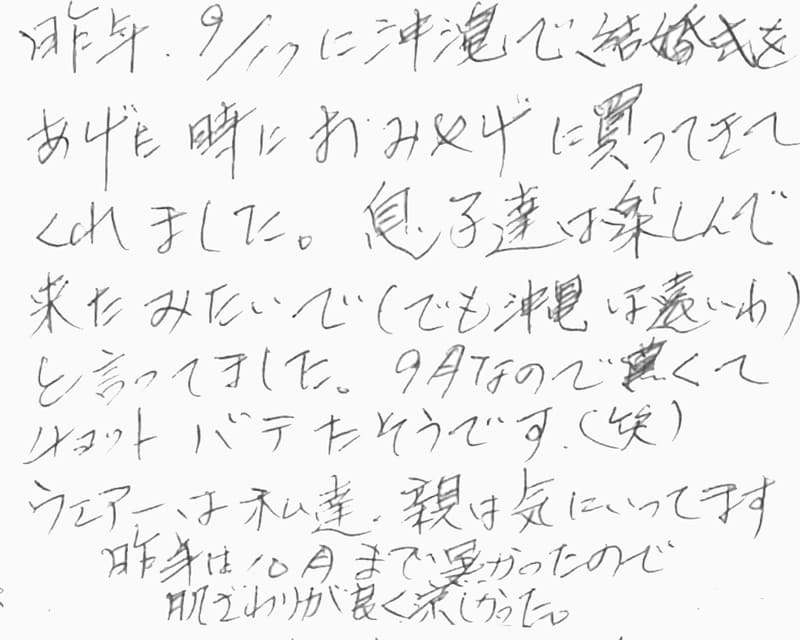 昨年.9/17に沖縄で、結婚式を
あげた時におみやげに買ってきて
くれました。息子達は楽しんで
来たみたいで(でも沖縄は遠いわ)
と言ってました。9月なので暑くて
チョット バテたそうです.(笑)
ウェアーは私達.親は気にいってます
昨年は10月まで暑かったので
肌ざわりが良く涼しかった。